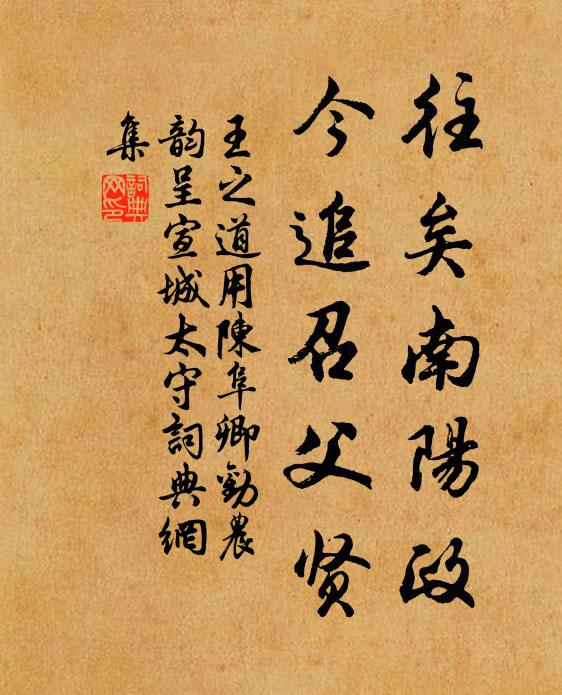 往矣南陽政
今追召父贤
王之道用陳阜卿勸農
韵呈宣城太守詞典網
集
詞典网印